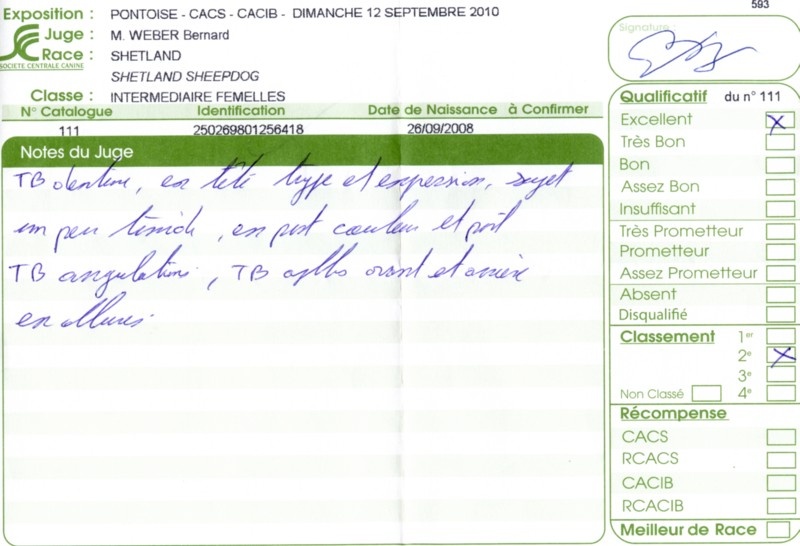 593
Exposition : PONTOISE - CACS - CACIB - DIMANCHE 12 SEPTEMBRE 2010
Juge : M. WEBER Bernard
Race : SHETLAND
SOCIETE CENTRALE CANINE
SHETLAND SHEEPDOG
Classe : INTERMEDIAIRE FEMELLES
N° Catalogue Identification Date de Naissance à Confirmer
111 250269801256418 26/09/2008
Notes du Juge
TB dentine, ex tête type et expression, sujet
un peu timide, ex port couleur et poil
TB angulations, TB avant et arrière
ex allures.
Signature :
Qualificatif du n° 111
Excellent X
Très Bon
Bon
Assez Bon
Insuffisant
Très Prometteur
Prometteur
Assez Prometteur
Absent
Disqualifié
Classement 1er
2e X
3e
Non Classé 4e
Récompense
CACS
RCACS
CACIB
RCACIB
Meilleur de Race